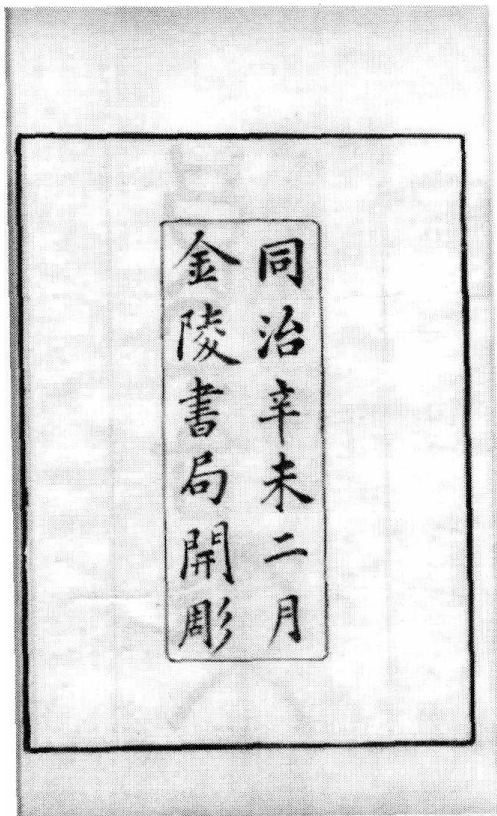 同治辛未二月
金陵書局開彫